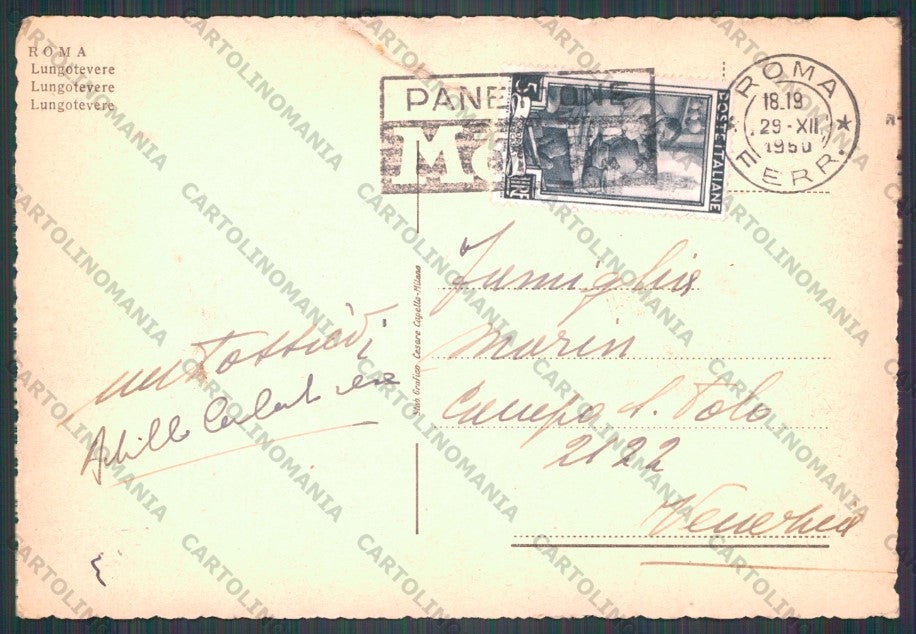 ROMA
Lungotevere
Lungotevere
Lungotevere
PANETTONE
M
5
LIRE
POSTE ITALIANE
ROMA
18.19
29-XII
1950
FERR.
Famiglia
Marin
Campo S. Polo
2122
Venezia
Achille
Stab. Grafico Cesare Capello-Milano
CARTOLINOMANIA